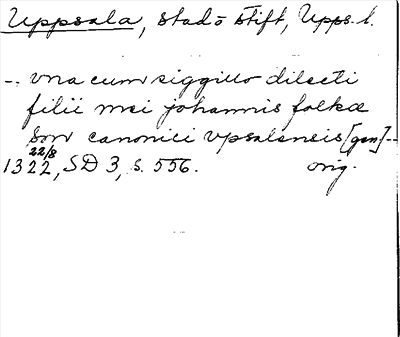 Uppsala, stad o stift, Upps. l.
-- vna cum siggillo dilecti
filii mei johannis falkæ
son canonici vpsalensis [gen] --
22/8
1322, SD 3, s. 556. orig.